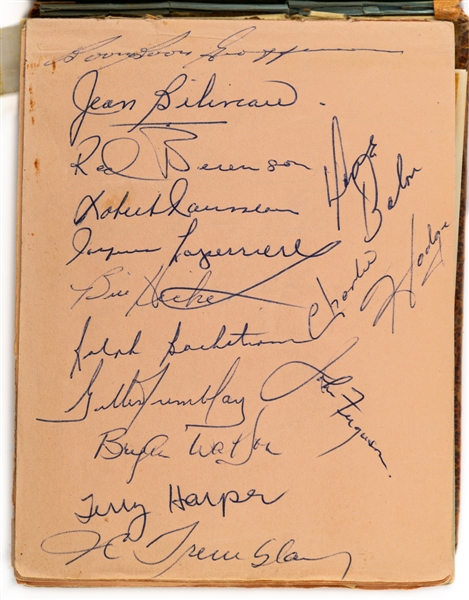 Boom Boom Geoffrion
Jean Béliveau.
Red Berenson
Robert Rousseau
Jacques Laperriere
Bill Hicke
Ralph Backstrom
Gilles Tremblay
Bryan Watson
Terry Harper
J C Tremblay
Charlie Hodge
John Ferguson.